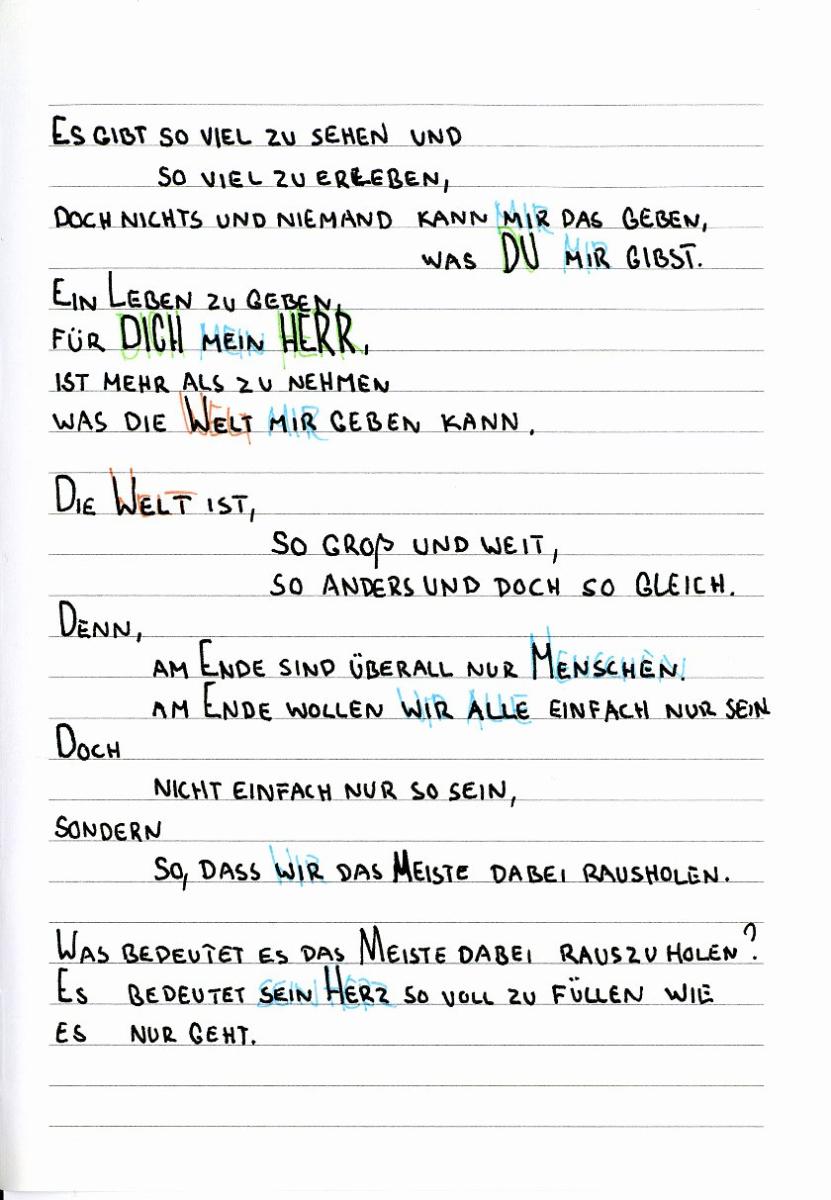 ES GIBT SO VIEL ZU SEHEN UND
SO VIEL ZU ERLEBEN,
DOCH NICHTS UND NIEMAND KANN MIR DAS GEBEN,
WAS DU MIR GIBST.
EIN LEBEN ZU GEBEN,
FÜR DICH MEIN HERR,
IST MEHR ALS ZU NEHMEN
WAS DIE WELT MIR GEBEN KANN.
DIE WELT IST,
SO GROß UND WEIT,
SO ANDERS UND DOCH SO GLEICH.
DENN,
AM ENDE SIND ÜBERALL NUR MENSCHEN.
AM ENDE WOLLEN WIR ALLE EINFACH NUR SEIN
DOCH
NICHT EINFACH NUR SO SEIN,
SONDERN
SO, DASS WIR DAS MEISTE DABEI RAUSHOLEN.
WAS BEDEUTET ES DAS MEISTE DABEI RAUSZUHOLEN?
ES BEDEUTET SEIN HERZ SO VOLL ZU FÜLLEN WIE
ES NUR GEHT.